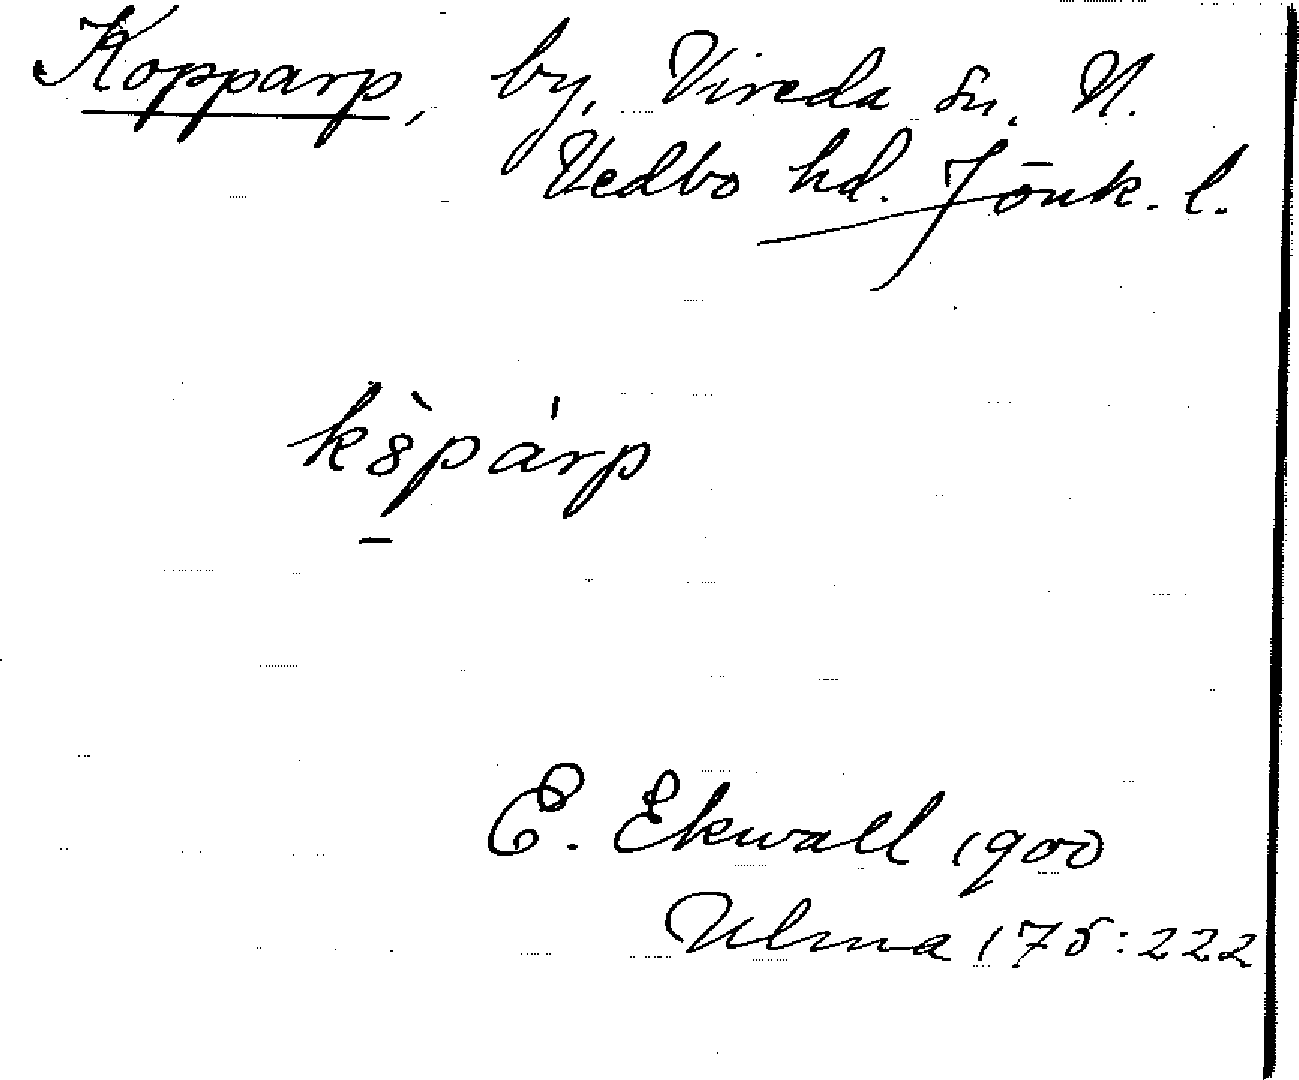 Kopparp, by, Vireda sn. N.
Vedbo hd. Jönk. l.
k8̀párp
E. Ekwall 1900
Ulma 175:222